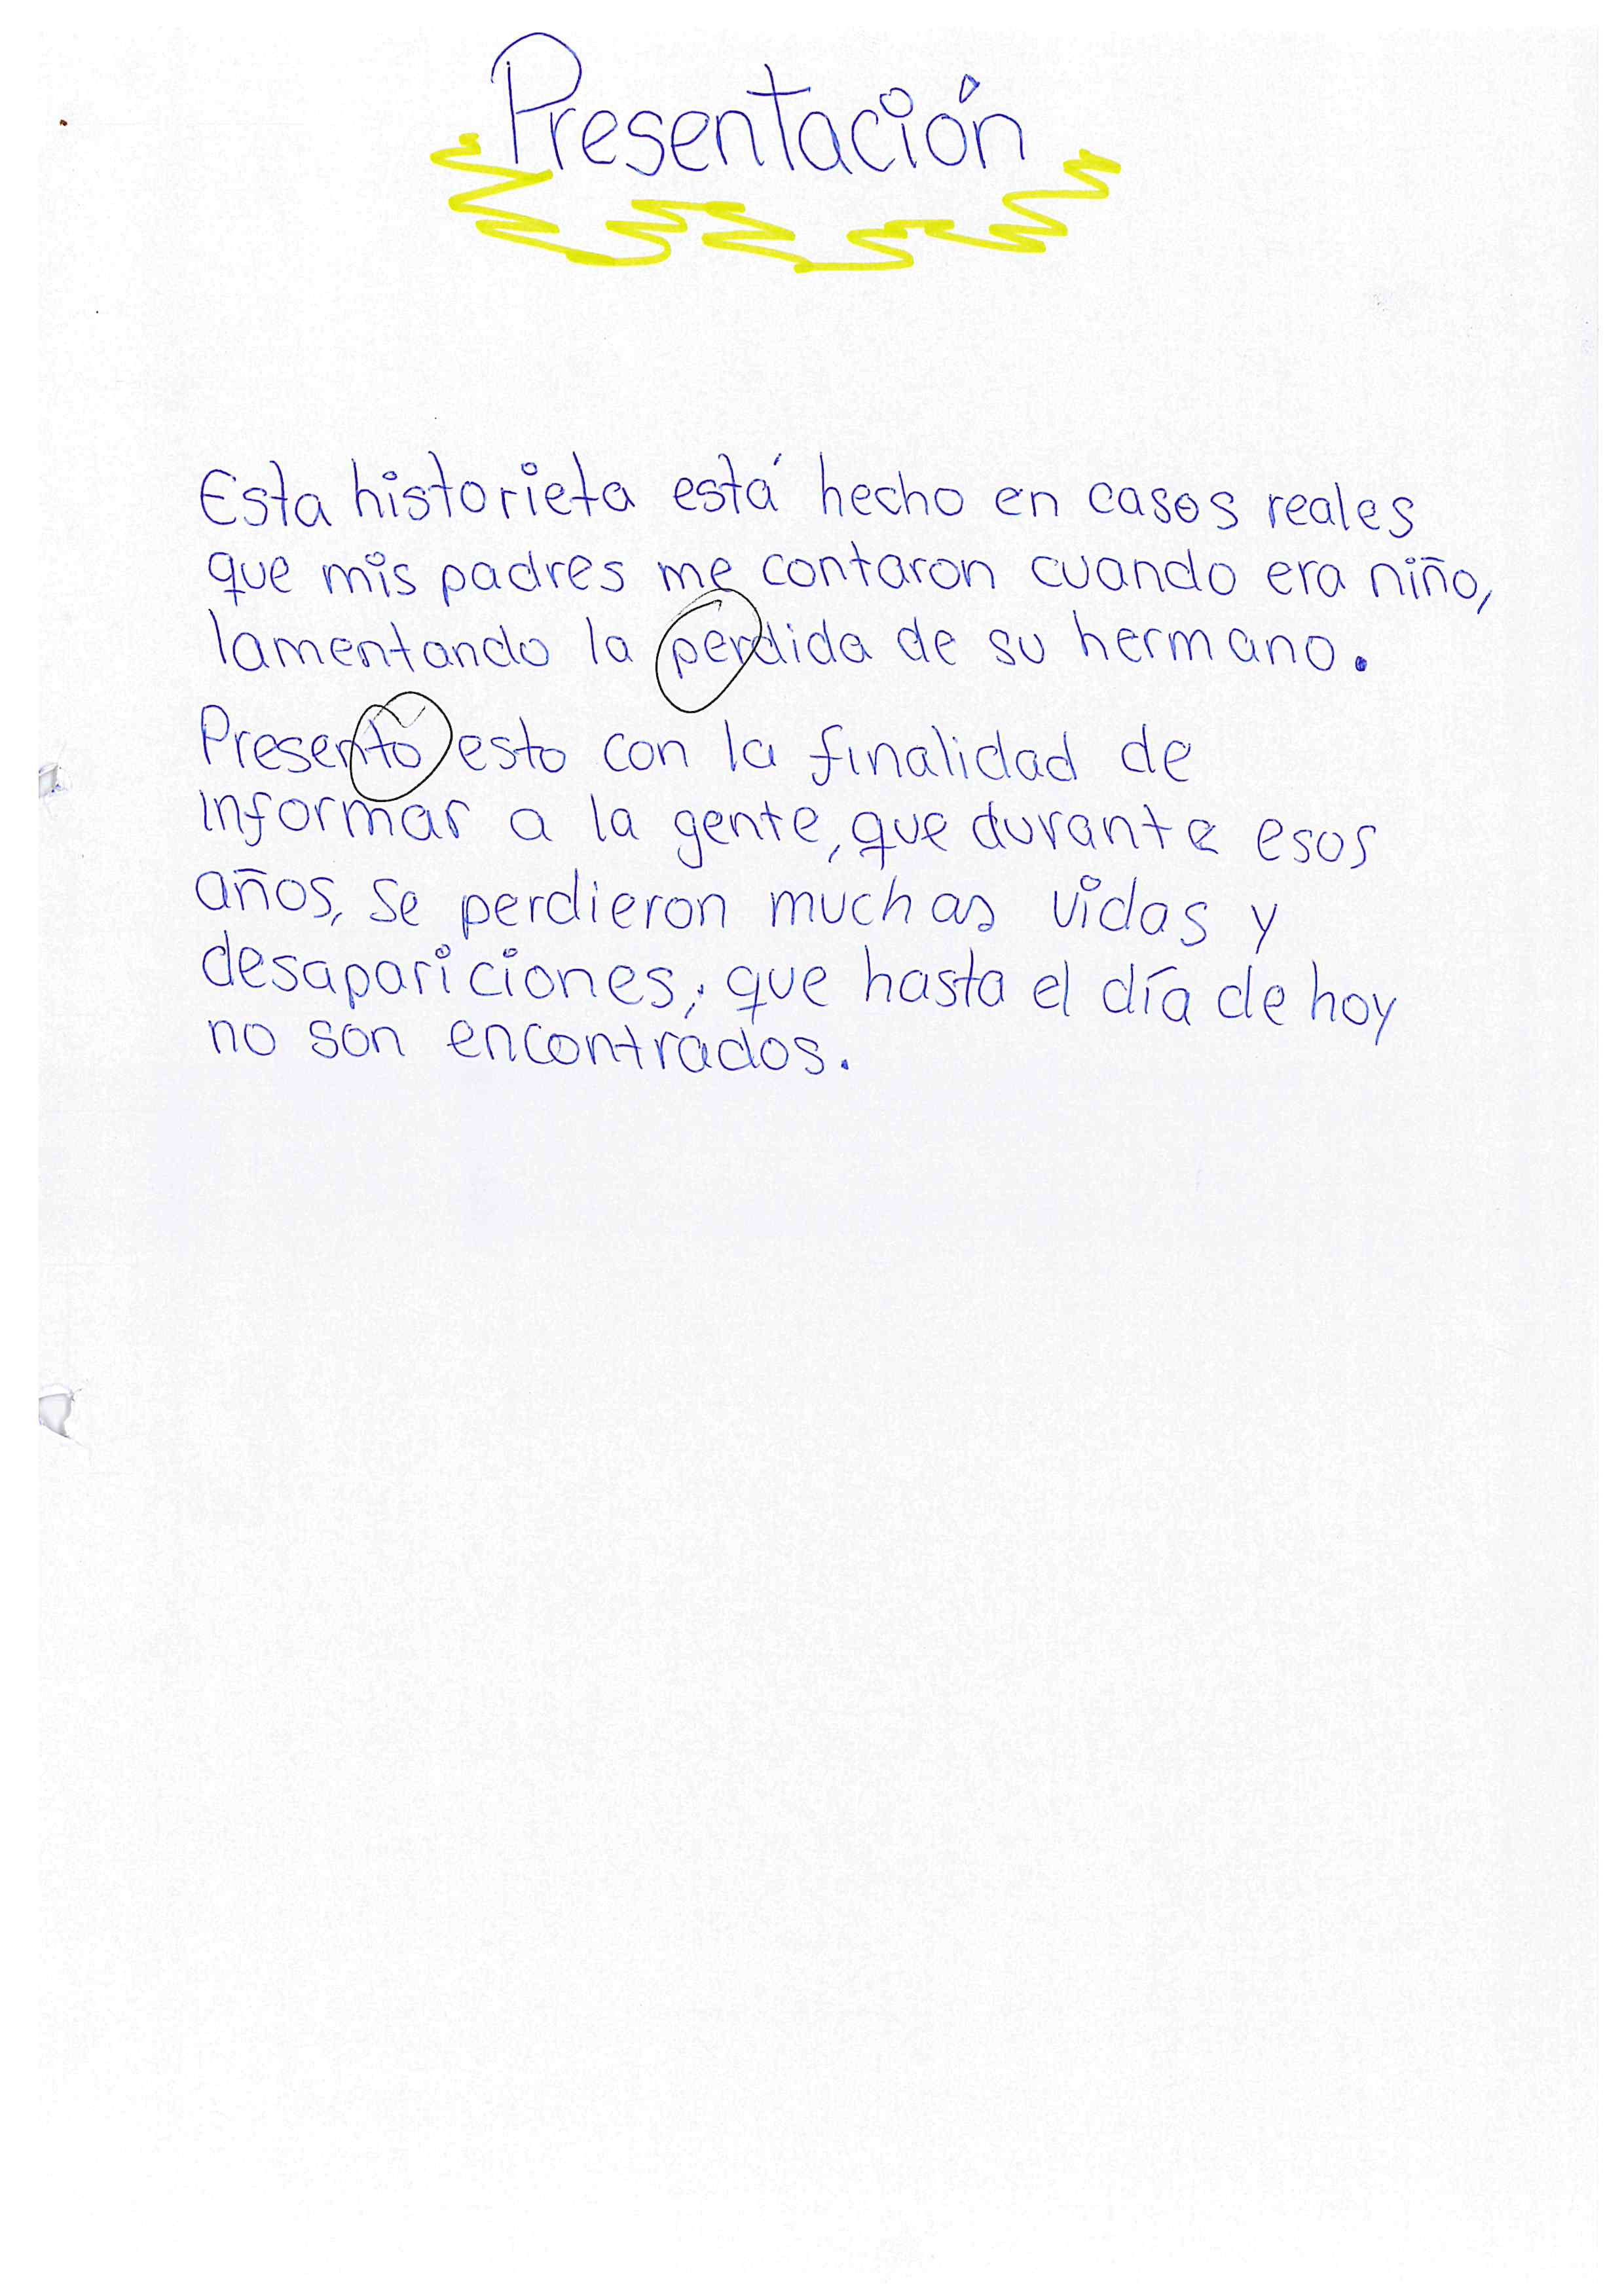 Presentación
Esta historieta está hecho en casos reales
que mis padres me contaron cuando era niño,
lamentando la perdida de su hermano.
Presentó esto con la finalidad de
informar a la gente, que durante esos
años, se perdieron muchas vidas y
desapariciones; que hasta el día de hoy
no son encontrados.